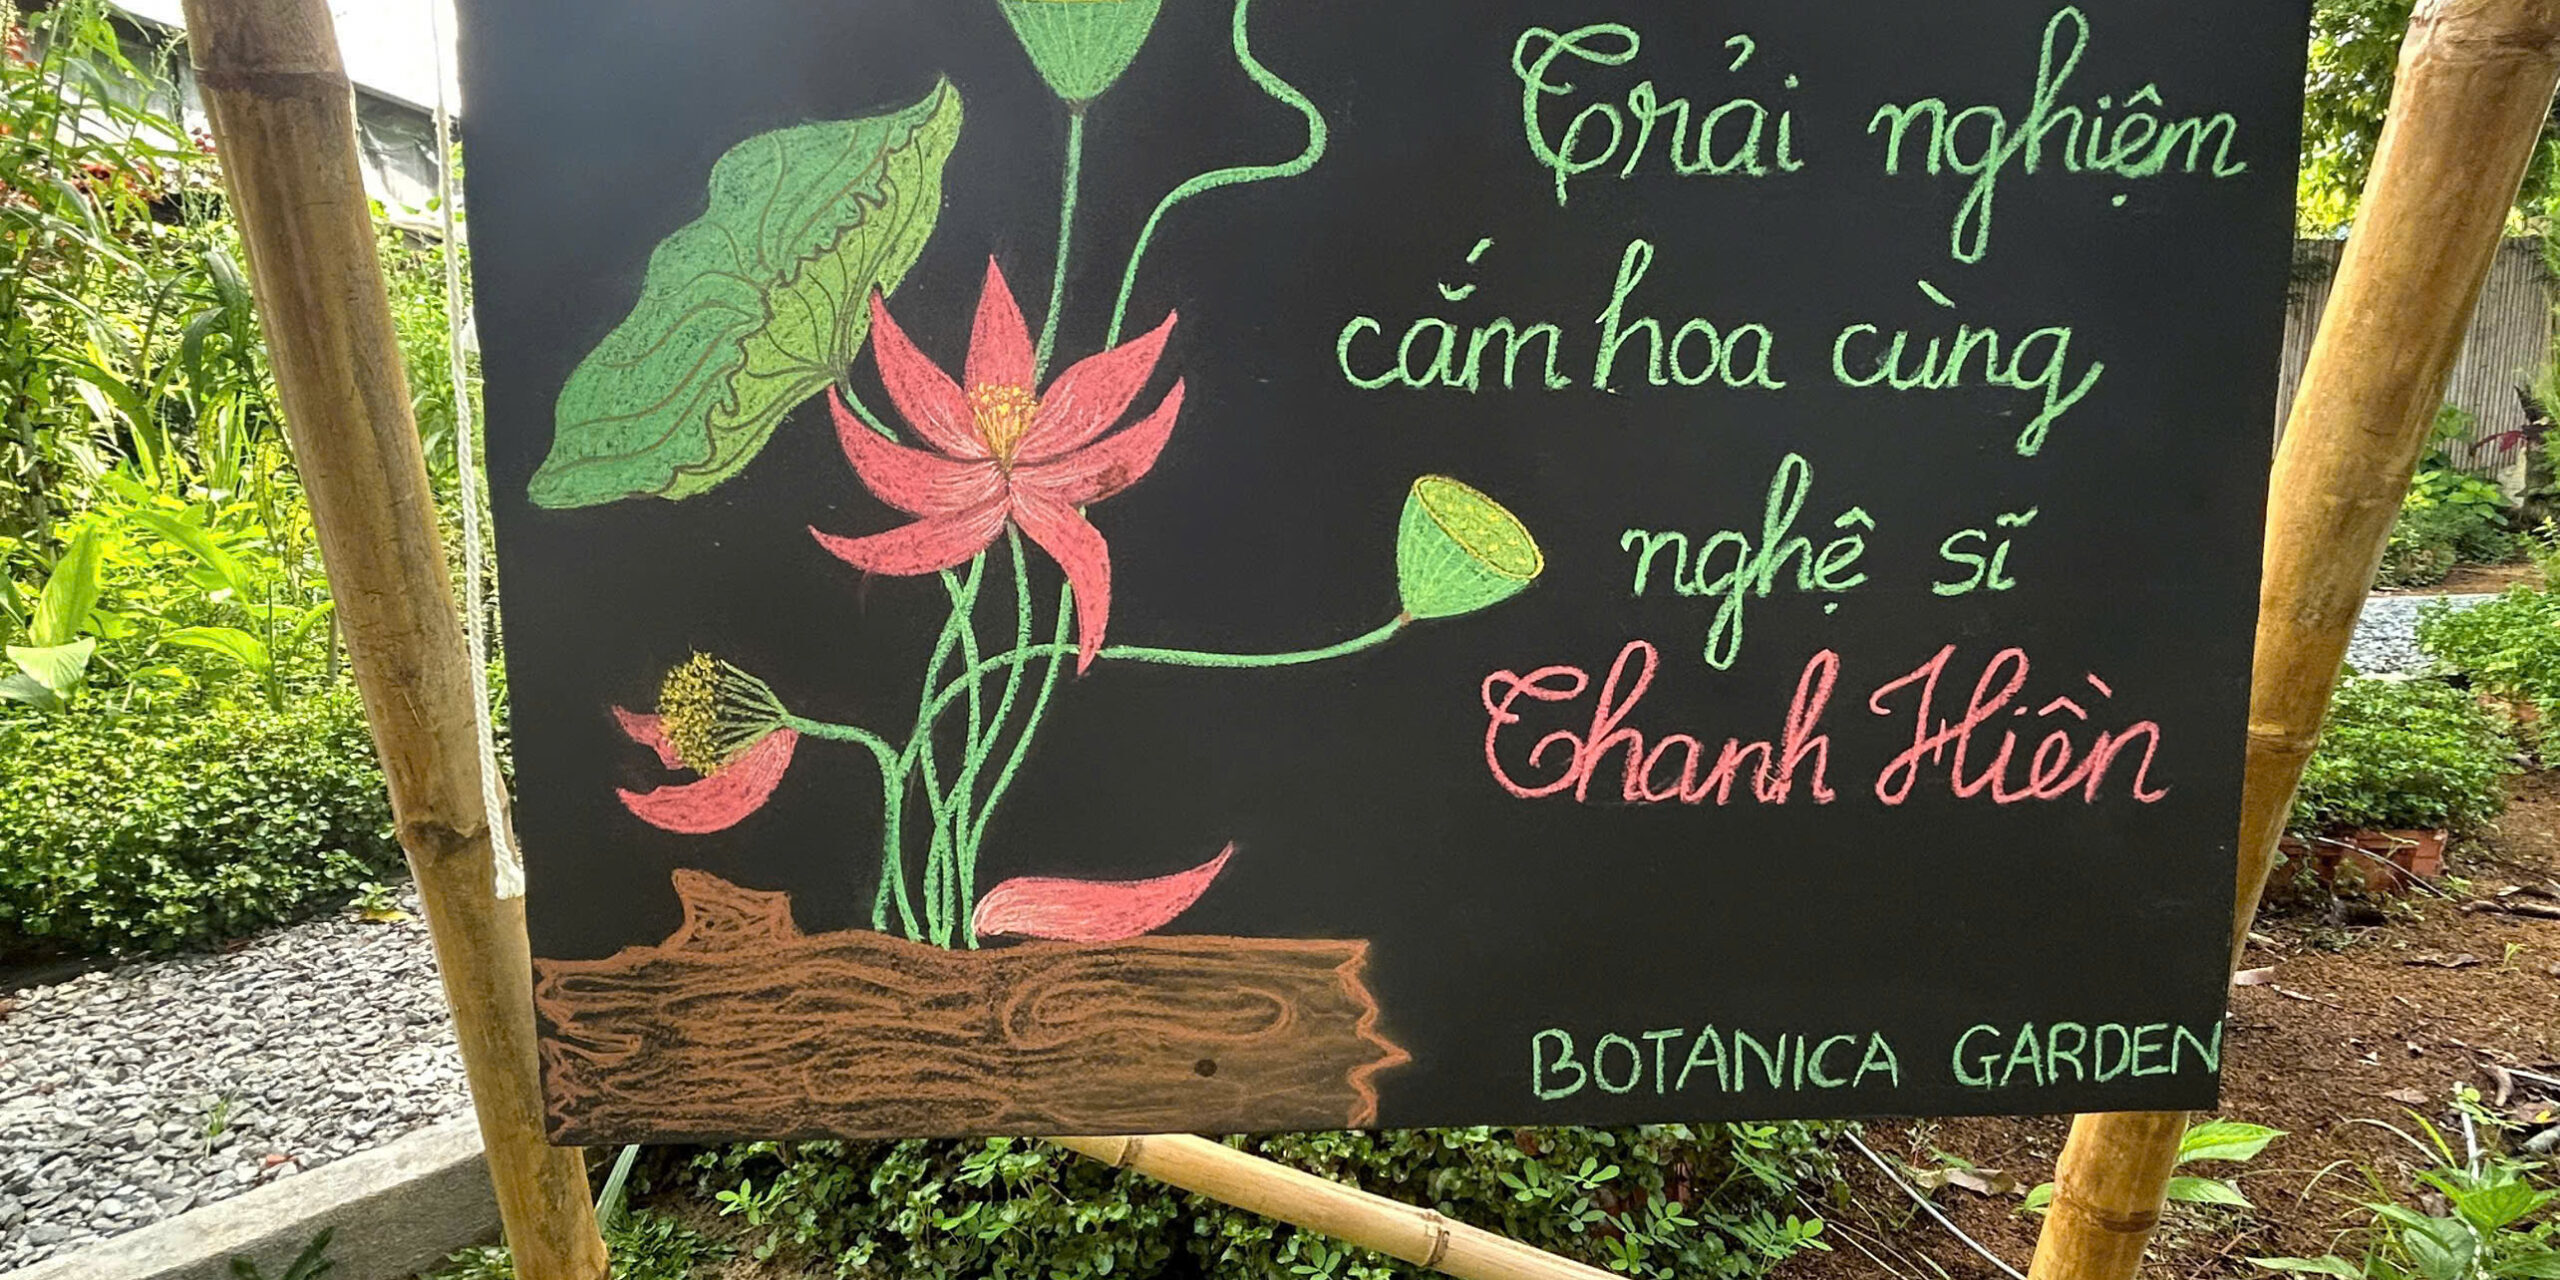 Trải nghiệm
cắm hoa cùng
nghệ sĩ
Thanh Hiền
BOTANICA GARDEN